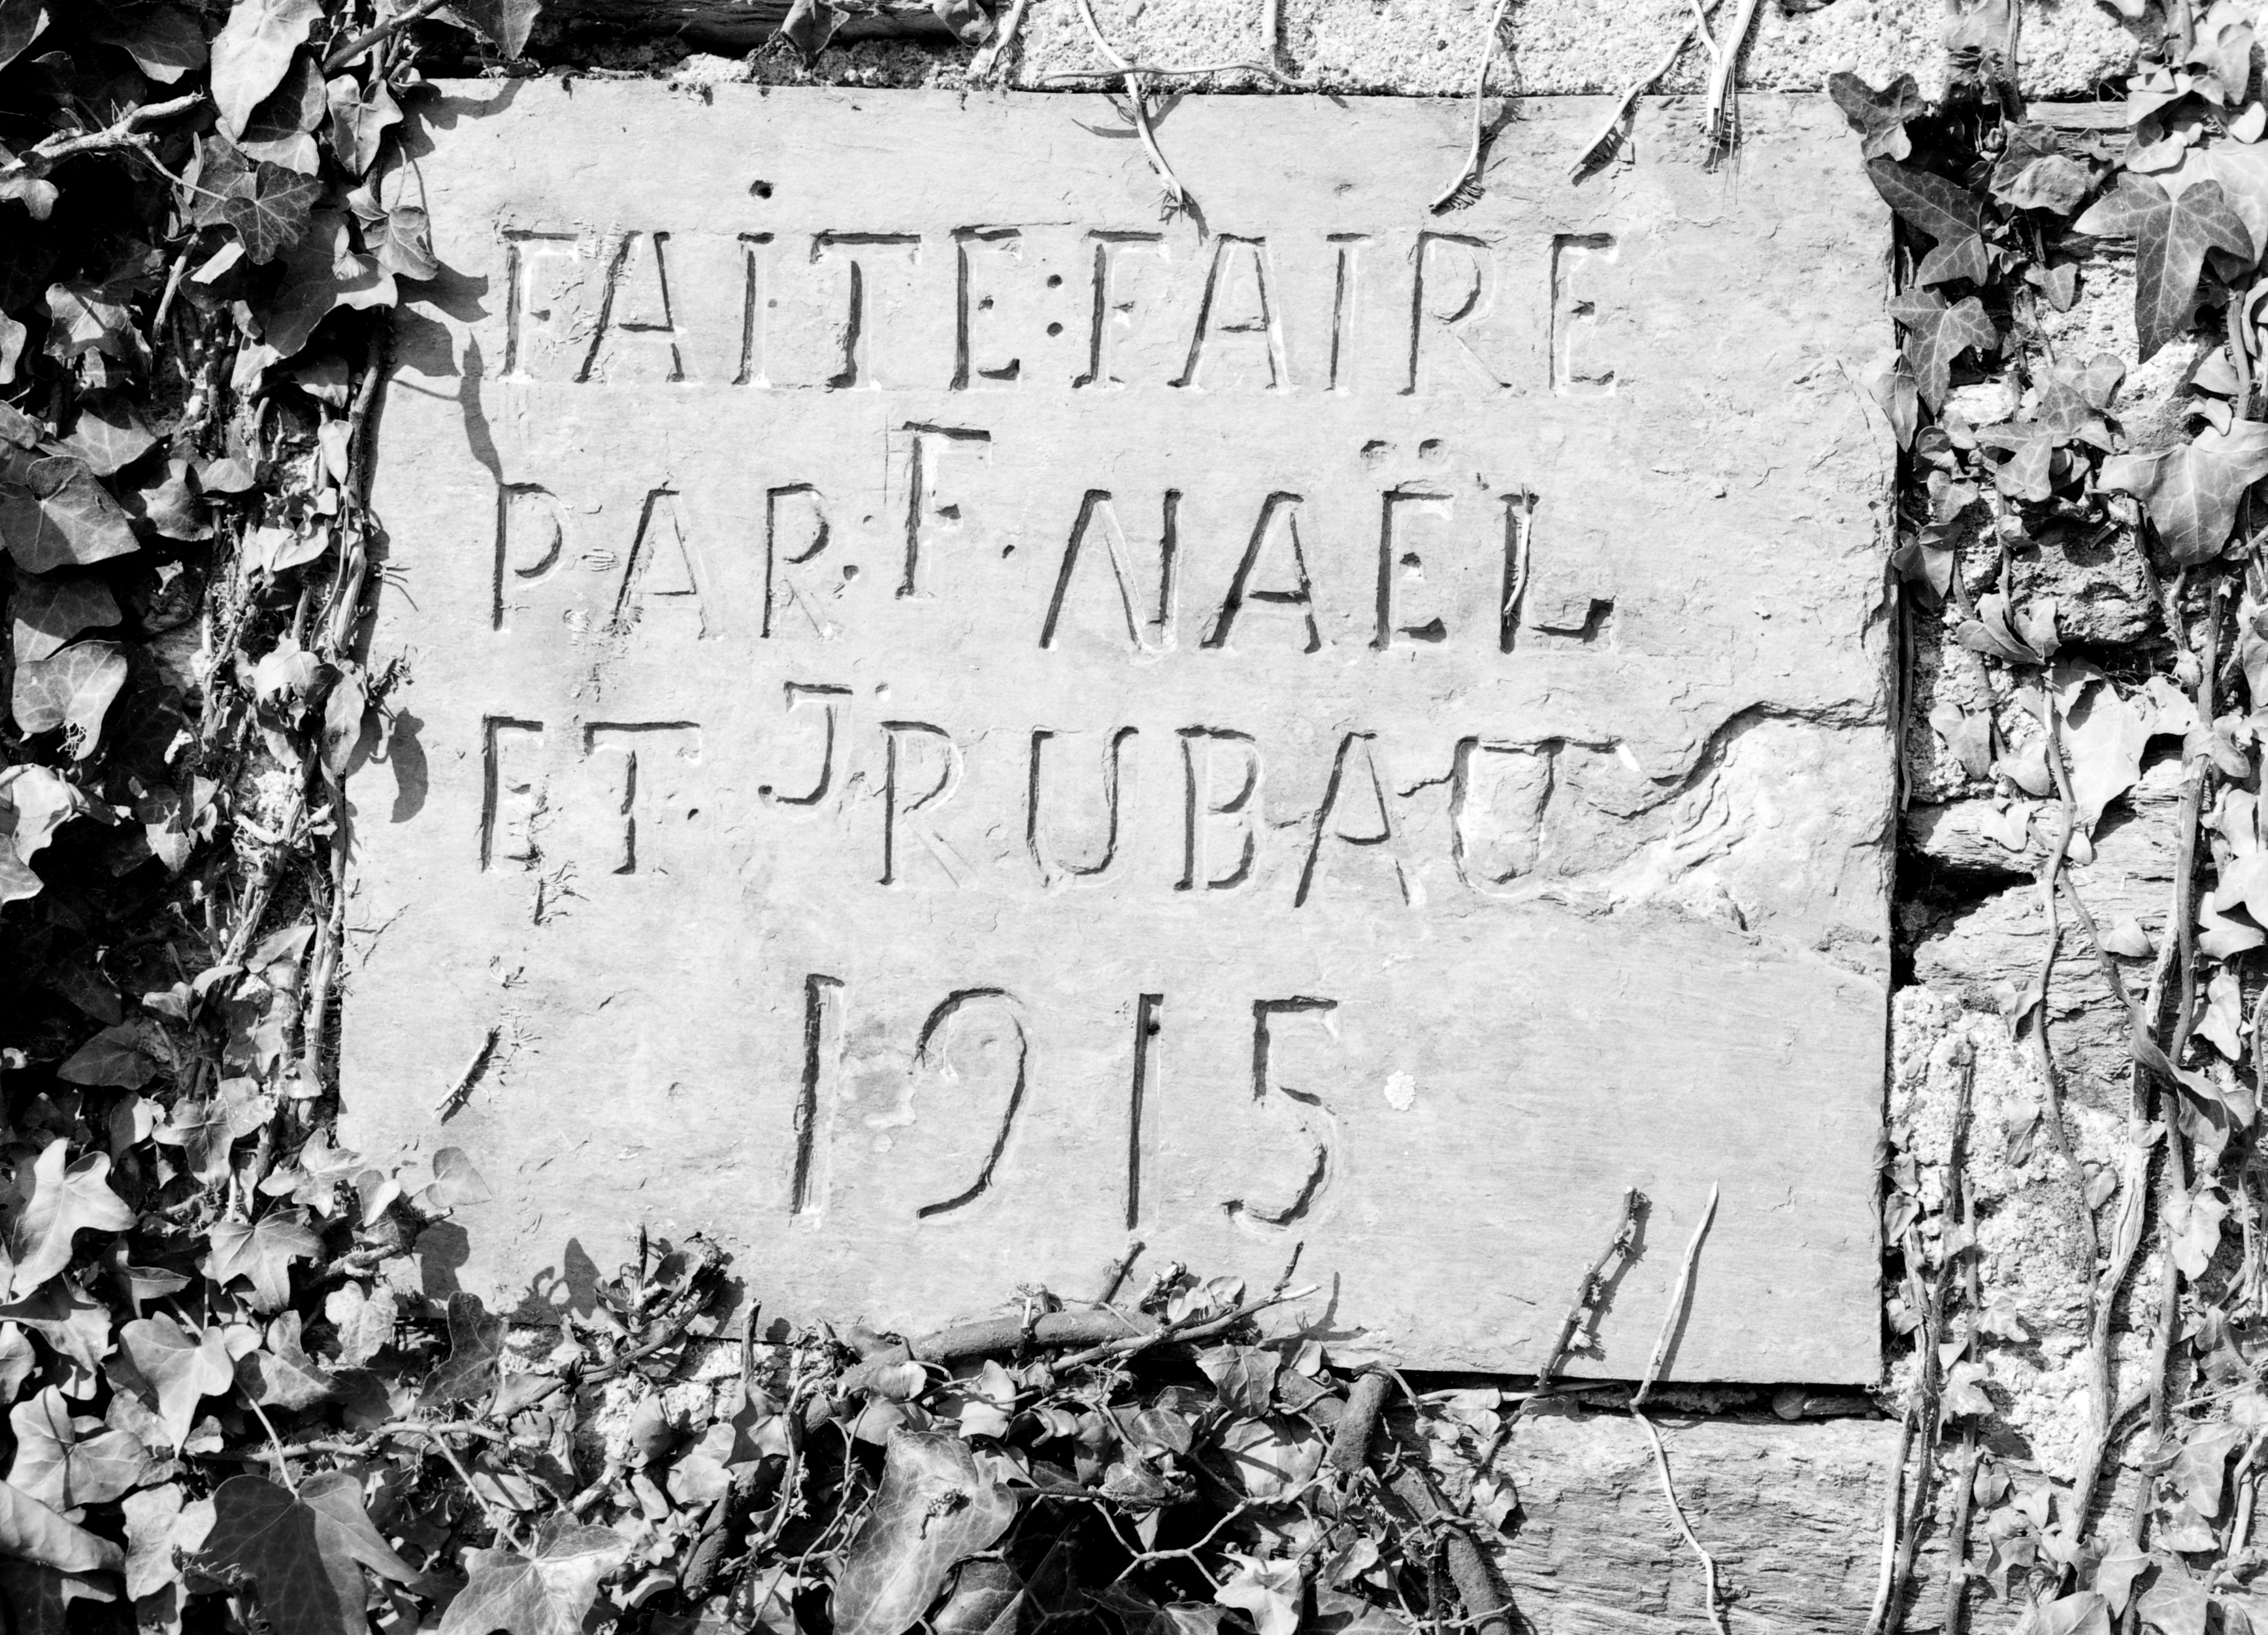 FAiTE:FAIRE
PAR:F. NAËL
ET. J. RUBAUT
1915